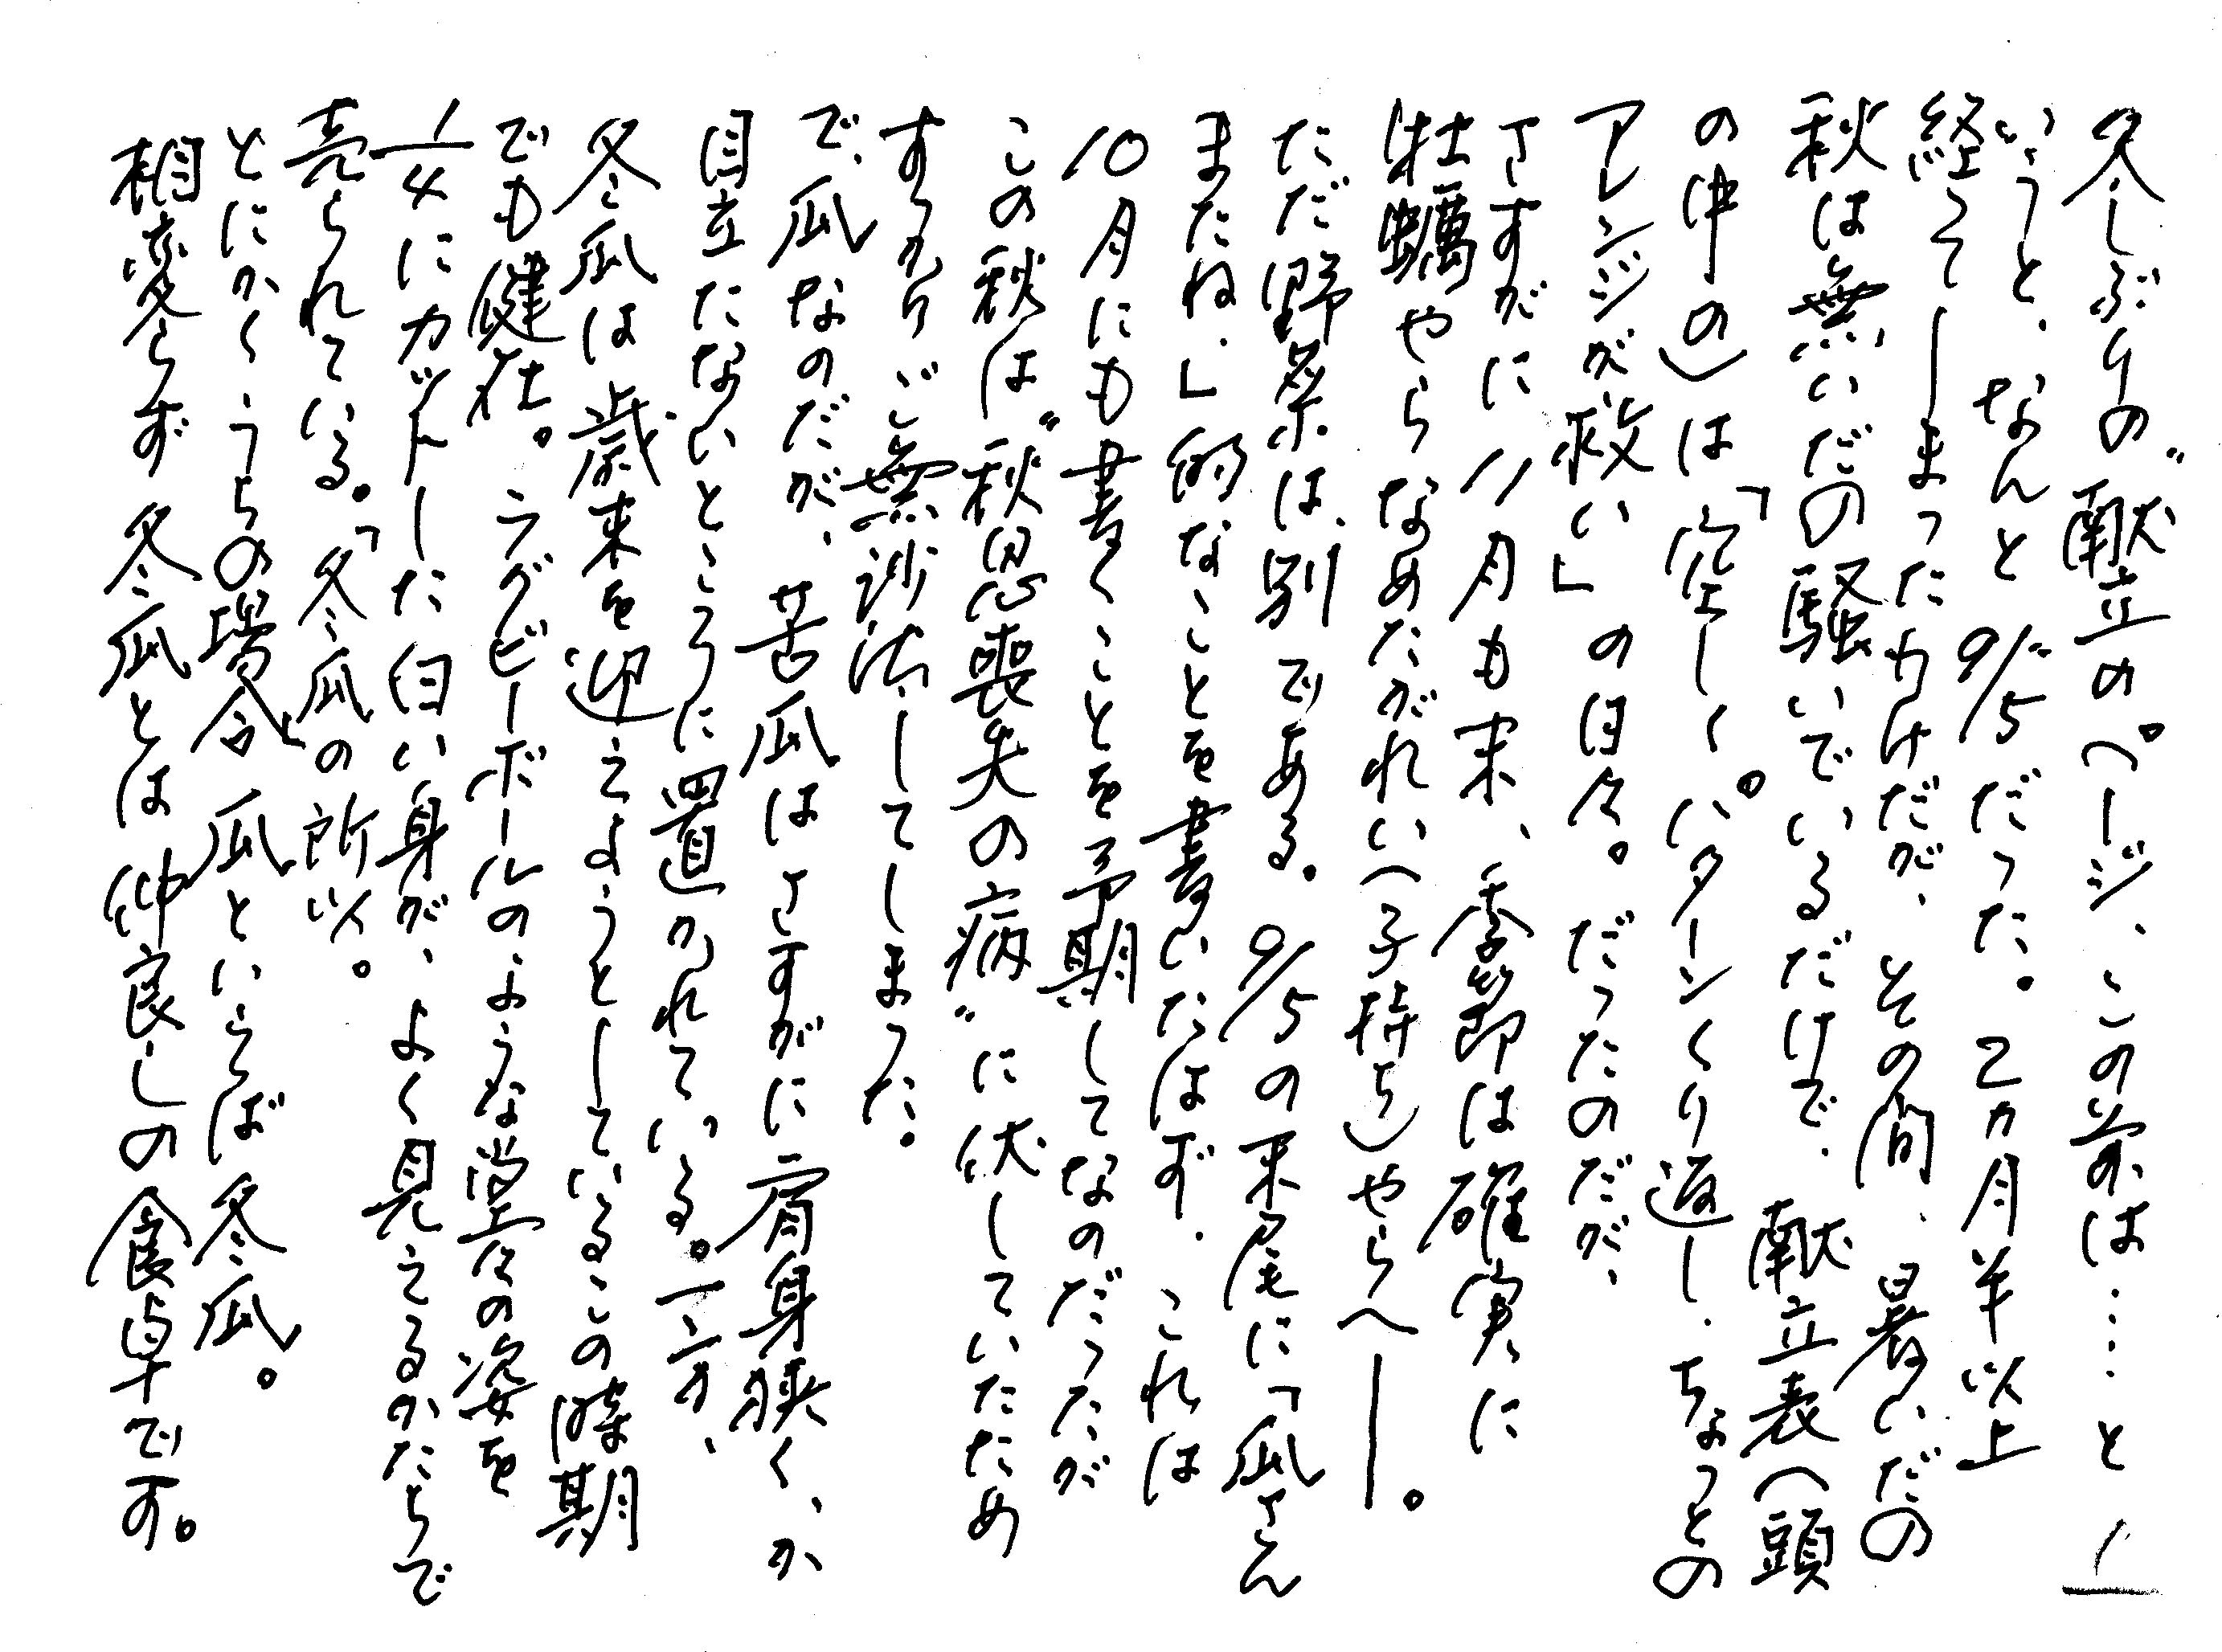 久しぶりの〝献立のページ、この前は……と
いうと、なんと9/5だった。2カ月半以上
経ってしまったわけだが、その間、暑いだの
秋は無いだの騒いでいるだけで、献立表(頭
の中の)は「空しく。パターンくり返し、ちょっとの
アレンジが救い」の日々。だったのだが、
さすがに11月も末、季節は確実に
牡蠣やらなめたがれい(子持ち)やらへ―。
ただ野菜は、別である。9/5の末尾に「瓜さん
またね、」的なことを書いたはず、これは
10月にも書くことを予期してなのだったが
この秋は〝秋思喪失の病〟に伏していたため
すっかりご無沙汰してしまった。
で、瓜なのだが、苦瓜はさすがに肩身狭く、か
目立たないところに置かれている。一方、
冬瓜は歳末を迎えようとしているこの時期
でも健在。ラグビーボールのような堂々の姿を
1/4にカットした白い身が、よく見えるかたちで
売られている。「冬瓜の所以。
とにかくうちの場合、瓜といえば冬瓜。
相変らず冬瓜とは仲良しの食卓です。
1